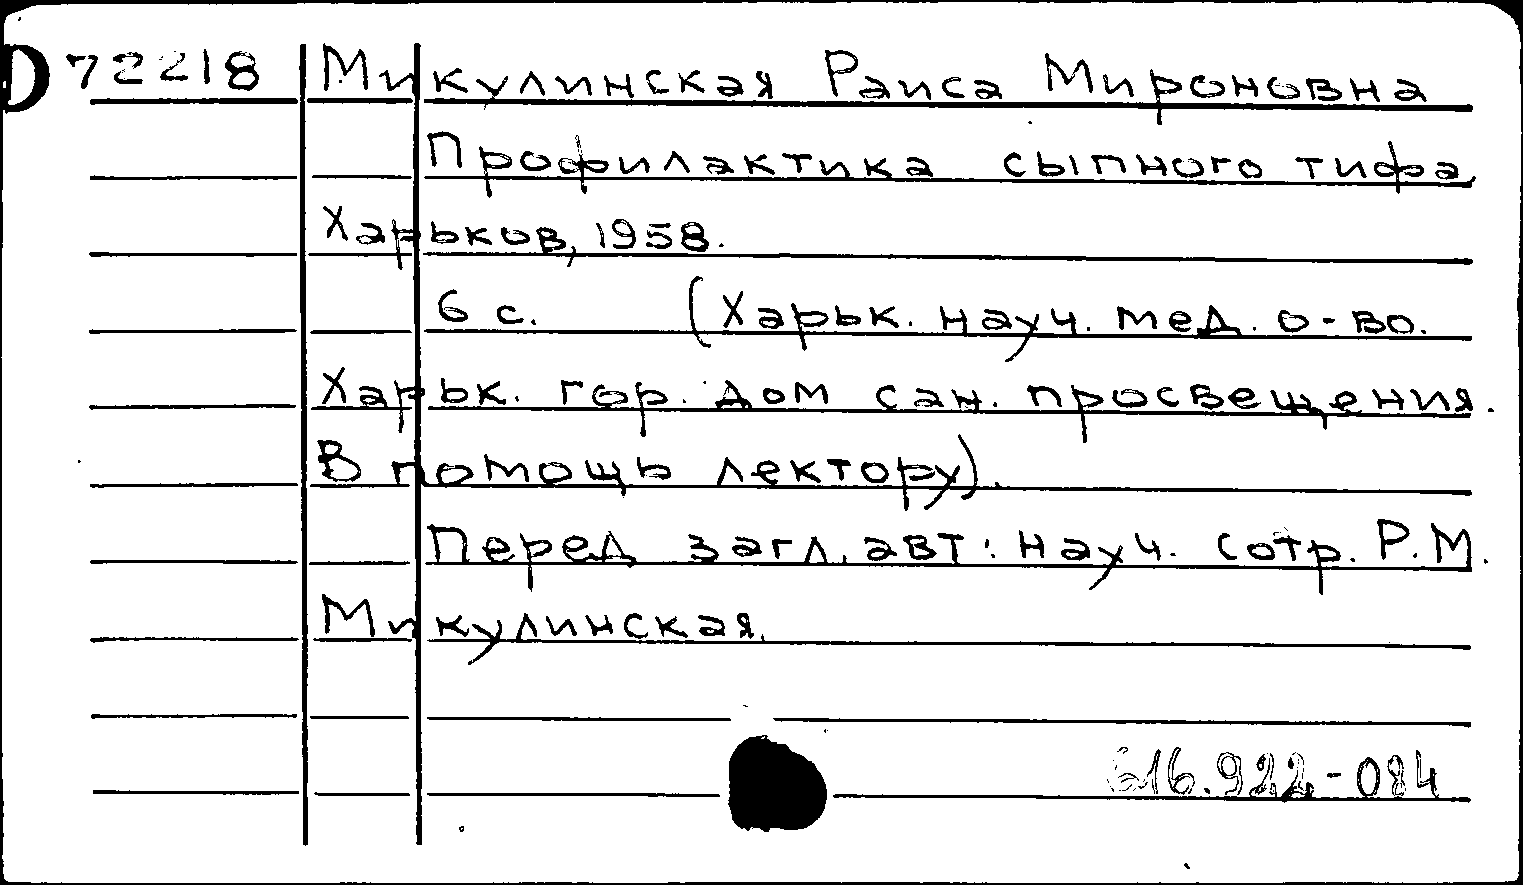 D 72218 Микулинская Раиса Мироновна
Профилактика сыпного тифа.
Харьков, 1958.
6 с. (Харьк. науч. мед. о-во.
Харьк. гор. дом сан. просвещения.
В помощь лектору).
Перед загл. авт: науч. сотр. Р.М.
Микулинская.
616.922-084